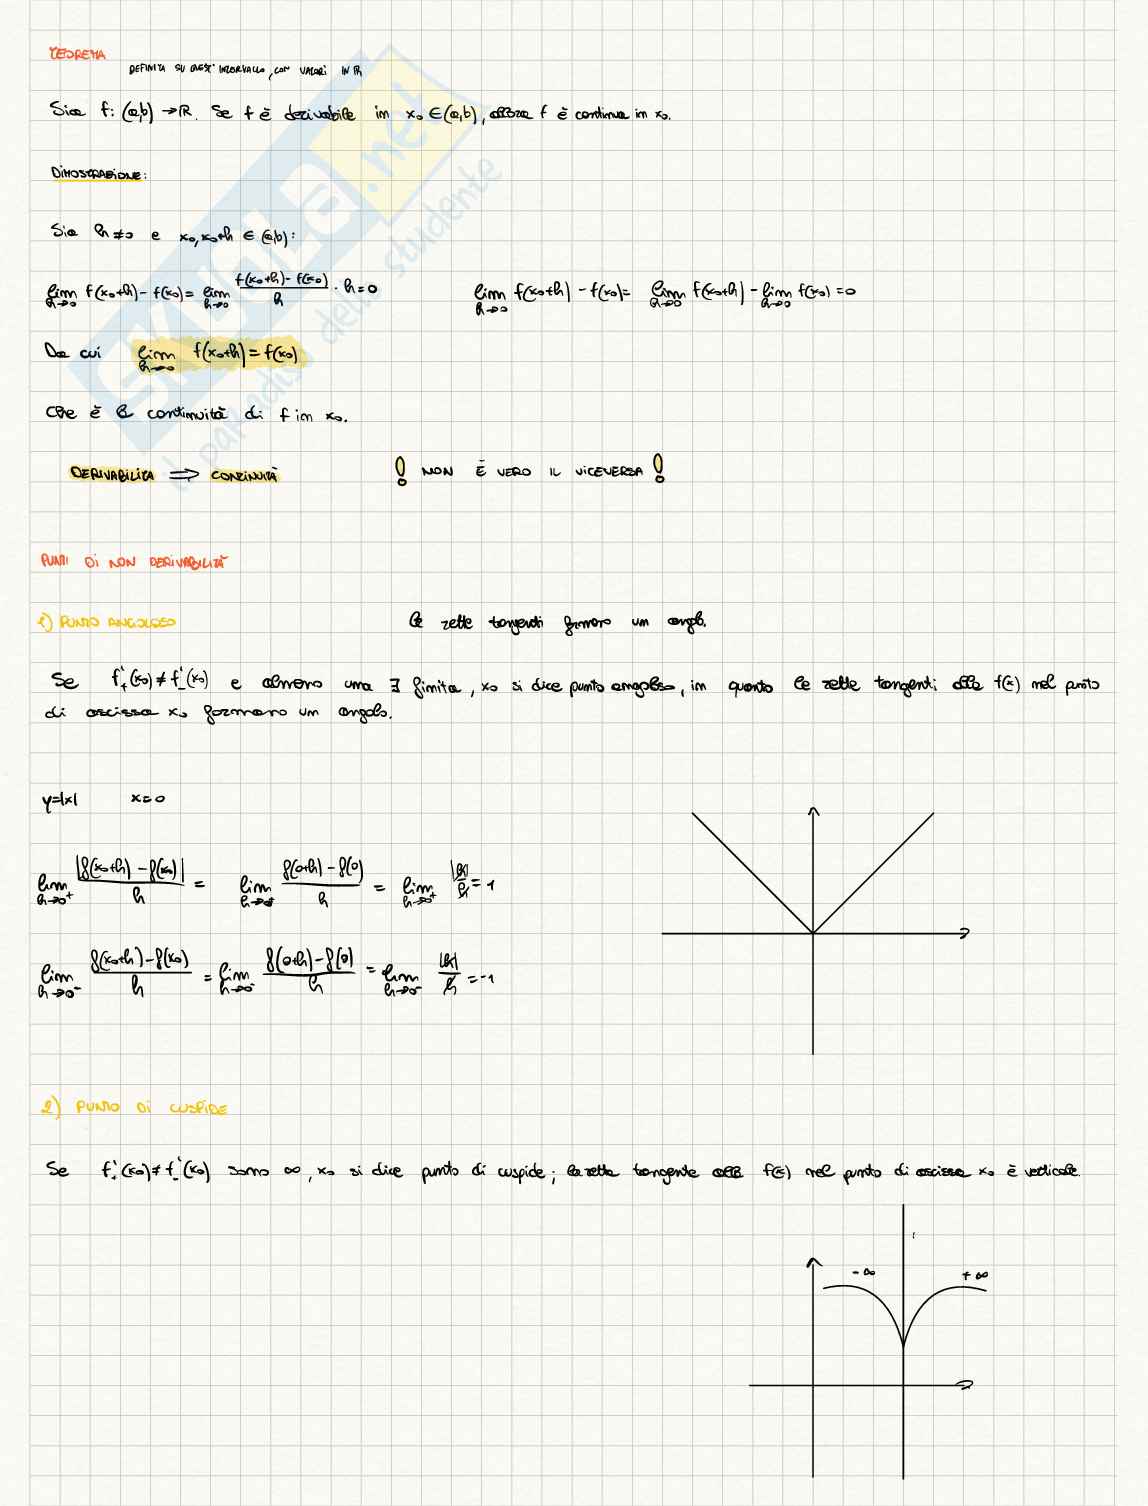 TEOREMA
DEFINITA SU QUEST' INTERVALLO, CON VALORI IN ℝ
Sia f: (a,b) → ℝ. Se f è derivabile in x₀ ∈ (a,b), allora f è continua in x₀.
DIMOSTRAZIONE:
Sia h ≠ 0 e x₀, x₀+h ∈ (a,b):
lim h→0 f(x₀+h) - f(x₀) = lim h→0 (f(x₀+h) - f(x₀))/h · h = 0 lim h→0 f(x₀+h) - f(x₀) = lim h→0 f(x₀+h) - lim h→0 f(x₀) = 0
Da cui lim h→0 f(x₀+h) = f(x₀)
Che è la continuità di f in x₀.
DERIVABILITÀ ⟹ CONTINUITÀ ! NON È VERO IL VICEVERSA !
PUNTI DI NON DERIVABILITÀ
1) PUNTO ANGOLOSO le rette tangenti formano un angolo.
Se f'₊(x₀) ≠ f'₋(x₀) e almeno una ∃ finita, x₀ si dice punto angoloso, in quanto le rette tangenti alla f(x) nel punto
di ascissa x₀ formano un angolo.
y=|x| x=0
lim h→0⁺ |f(x₀+h) - f(x₀)|/h = lim h→0⁺ (f(0+h) - f(0))/h = lim h→0⁺ |h|/h = 1
lim h→0⁻ (f(x₀+h) - f(x₀))/h = lim h→0⁻ (f(0+h) - f(0))/h = lim h→0⁻ |h|/h = -1
2) PUNTO DI CUSPIDE
Se f'₊(x₀) ≠ f'₋(x₀) sono ∞, x₀ si dice punto di cuspide; la retta tangente alla f(x) nel punto di ascissa x₀ è verticale.
-∞ +∞
SKUOLA.net
il paradiso dello studente